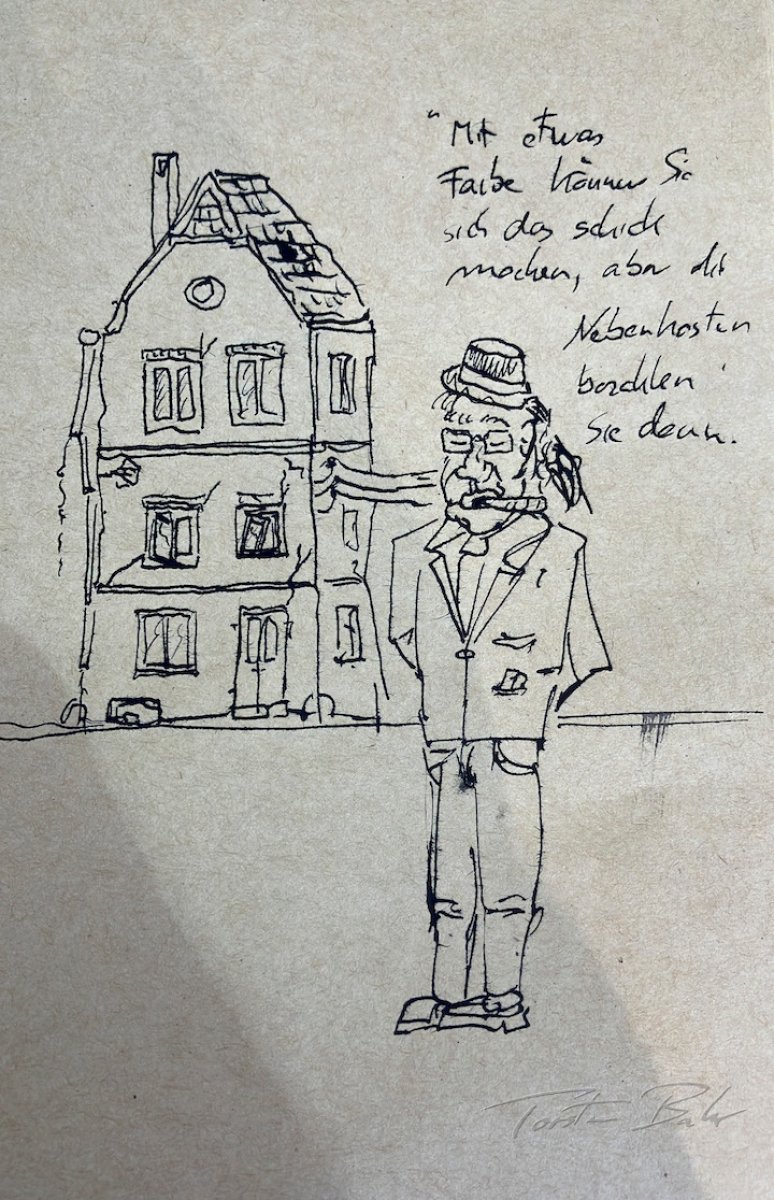 "Mit etwas
Farbe können Sie
sich das schick
machen, aber die
Nebenkosten
bezahlen
Sie dann.
Torsten